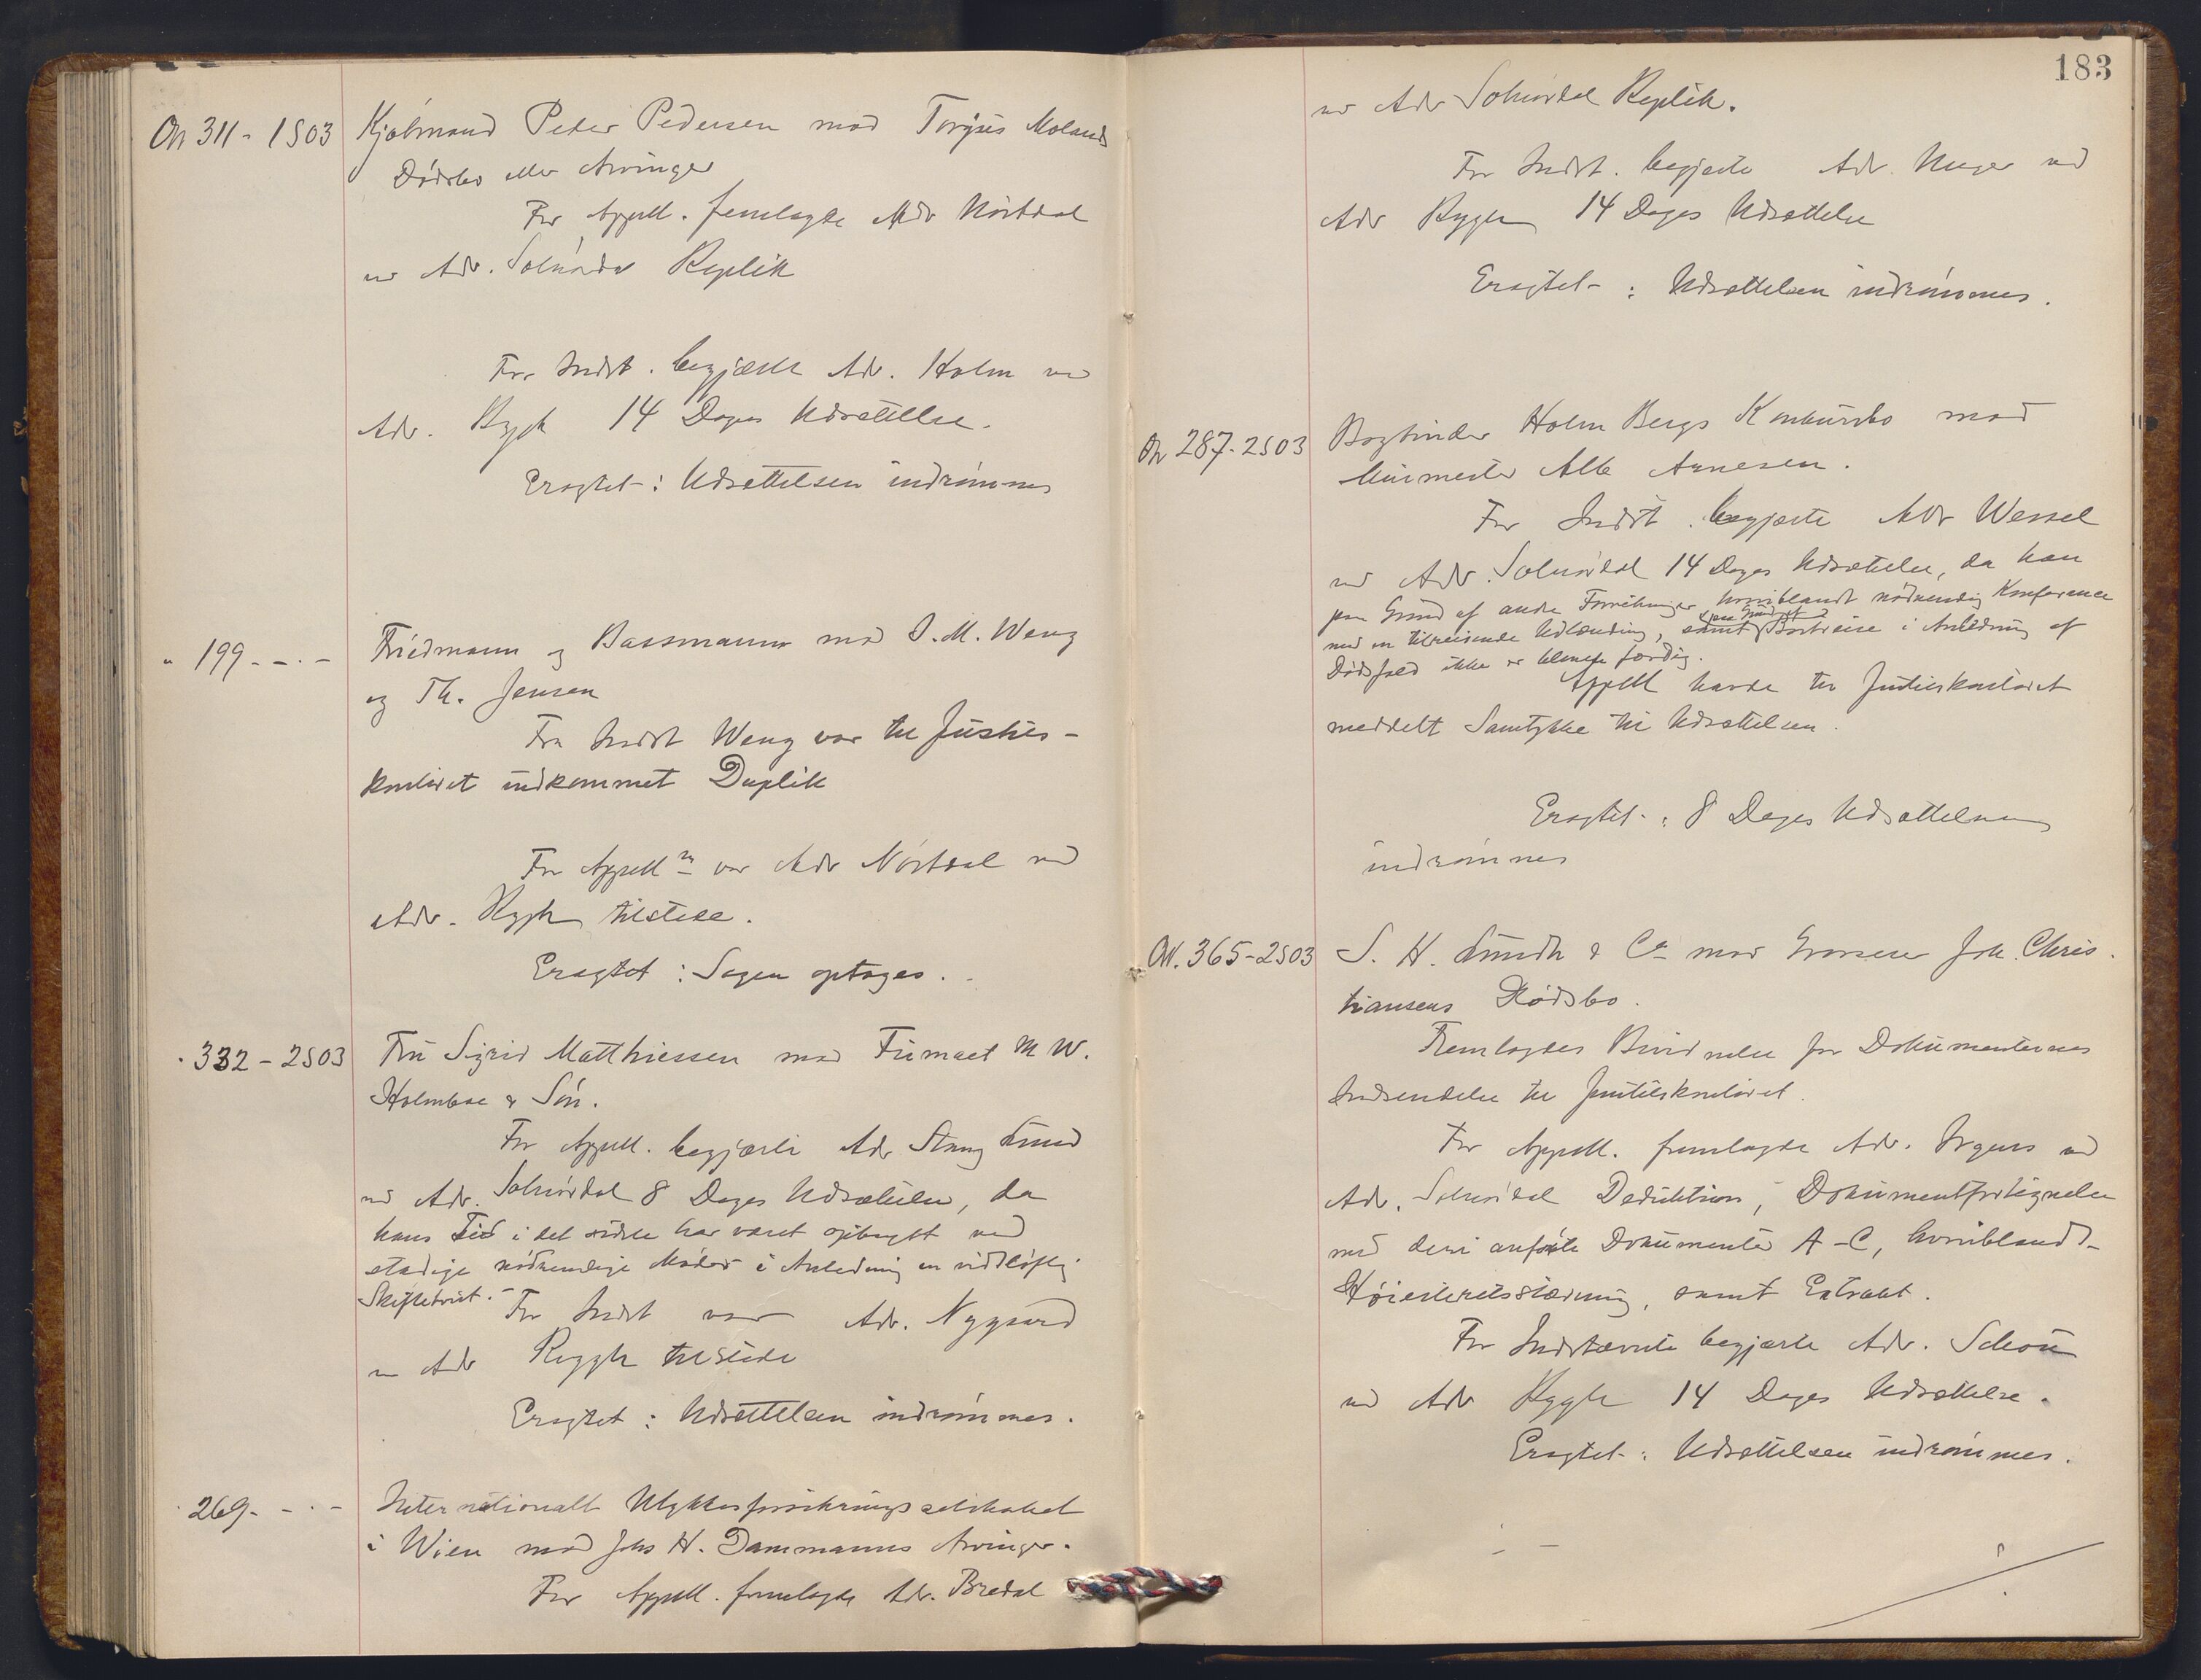 On 311 - 1S03 Kjøbmand Peder Pedersen mod Torjus Molands
Dødsbo eller Arvinger
For Appell. fremlagde Adv Nørtdal
ved Adv. Solnørdal Replik
For Indst. begjærte Adv. Holm ved
Adv. Rygh 14 Dages Udsættelse.
Eragtet: Udsættelsen indrømmes
" 199 - - . - Friedmann og Bassmann mod O. M. Weng
og Th. Jensen
Fra Indst Weng var til Justits-
kontoret indkommet Duplik
For Appell var Adv Nørtdal ved
Adv. Rygh tilstede.
Eragtet: Sagen optages.
" 332 - 2S03 Fru Sigrid Matthiessen mod Firmaet M W.
Holmboe & Søn.
For Appell. begjærte Adv Stang Lund
ved Adv. Solnørdal 8 Dages Udsættelse, da
hans Tid i det sidste har været optagt ved
stadige nødvendige Møder i Anledning en vidtløftig
Skiftetvist.
For Indst var Adv. Nygaard
ved Adv Rygh tilstede
Eragtet: Udsættelsen indrømmes.
" 269 - - . - Internationalt Ulykkesforsikringsselskabet
i Wien mod Johs H. Dammanns Arvinger.
For Appell. fremlagde Adv. Bredal
183
ved Adv Solnørdal Replik.
For Indst. begjærte Adv. ved
Adv Rygh 14 Dages Udsættelse
Eragtet: Udsættelsen indrømmes.
On 287 - 2S03 Bogbinder Holm Bergs Konkursbo mod
Murmester Alb Arnesen.
For Indst. begjærte Adv Wessel
ved Adv. Solnørdal 14 Dages Udsættelse, da han
paa Grund af andre Forretninger, hvoriblandt nødvendig Konferance
med en tilreisende Udlænding, samt paa Grund af Bortreise i Anledning af
Dødsfald ikke er bleven færdig.
Appell havde til Justitskontoret
meddelt Samtykke til Udsættelsen.
Eragtet: 8 Dages Udsættelse
indrømmes
On. 365 - 2S03 S. H. Lundh & Co mod Grosserer Joh. Chris-
tiansens Dødsbo.
Fremlagdes Bevidnelse for Dokumenternes
Indsendelse til Justitskontoret.
For Appell. fremlagde Adv. ved
Adv. Solnørdal Deduktion, Dokumentfortegnelse
med deri anførte Dokumenter A-C, hvoriblandt
Høiesteretsstævning, samt Extrakt.
For Indstævnte begjærte Adv. Schou
ved Adv Rygh 14 Dages Udsættelse.
Eragtet: Udsættelsen indrømmes.